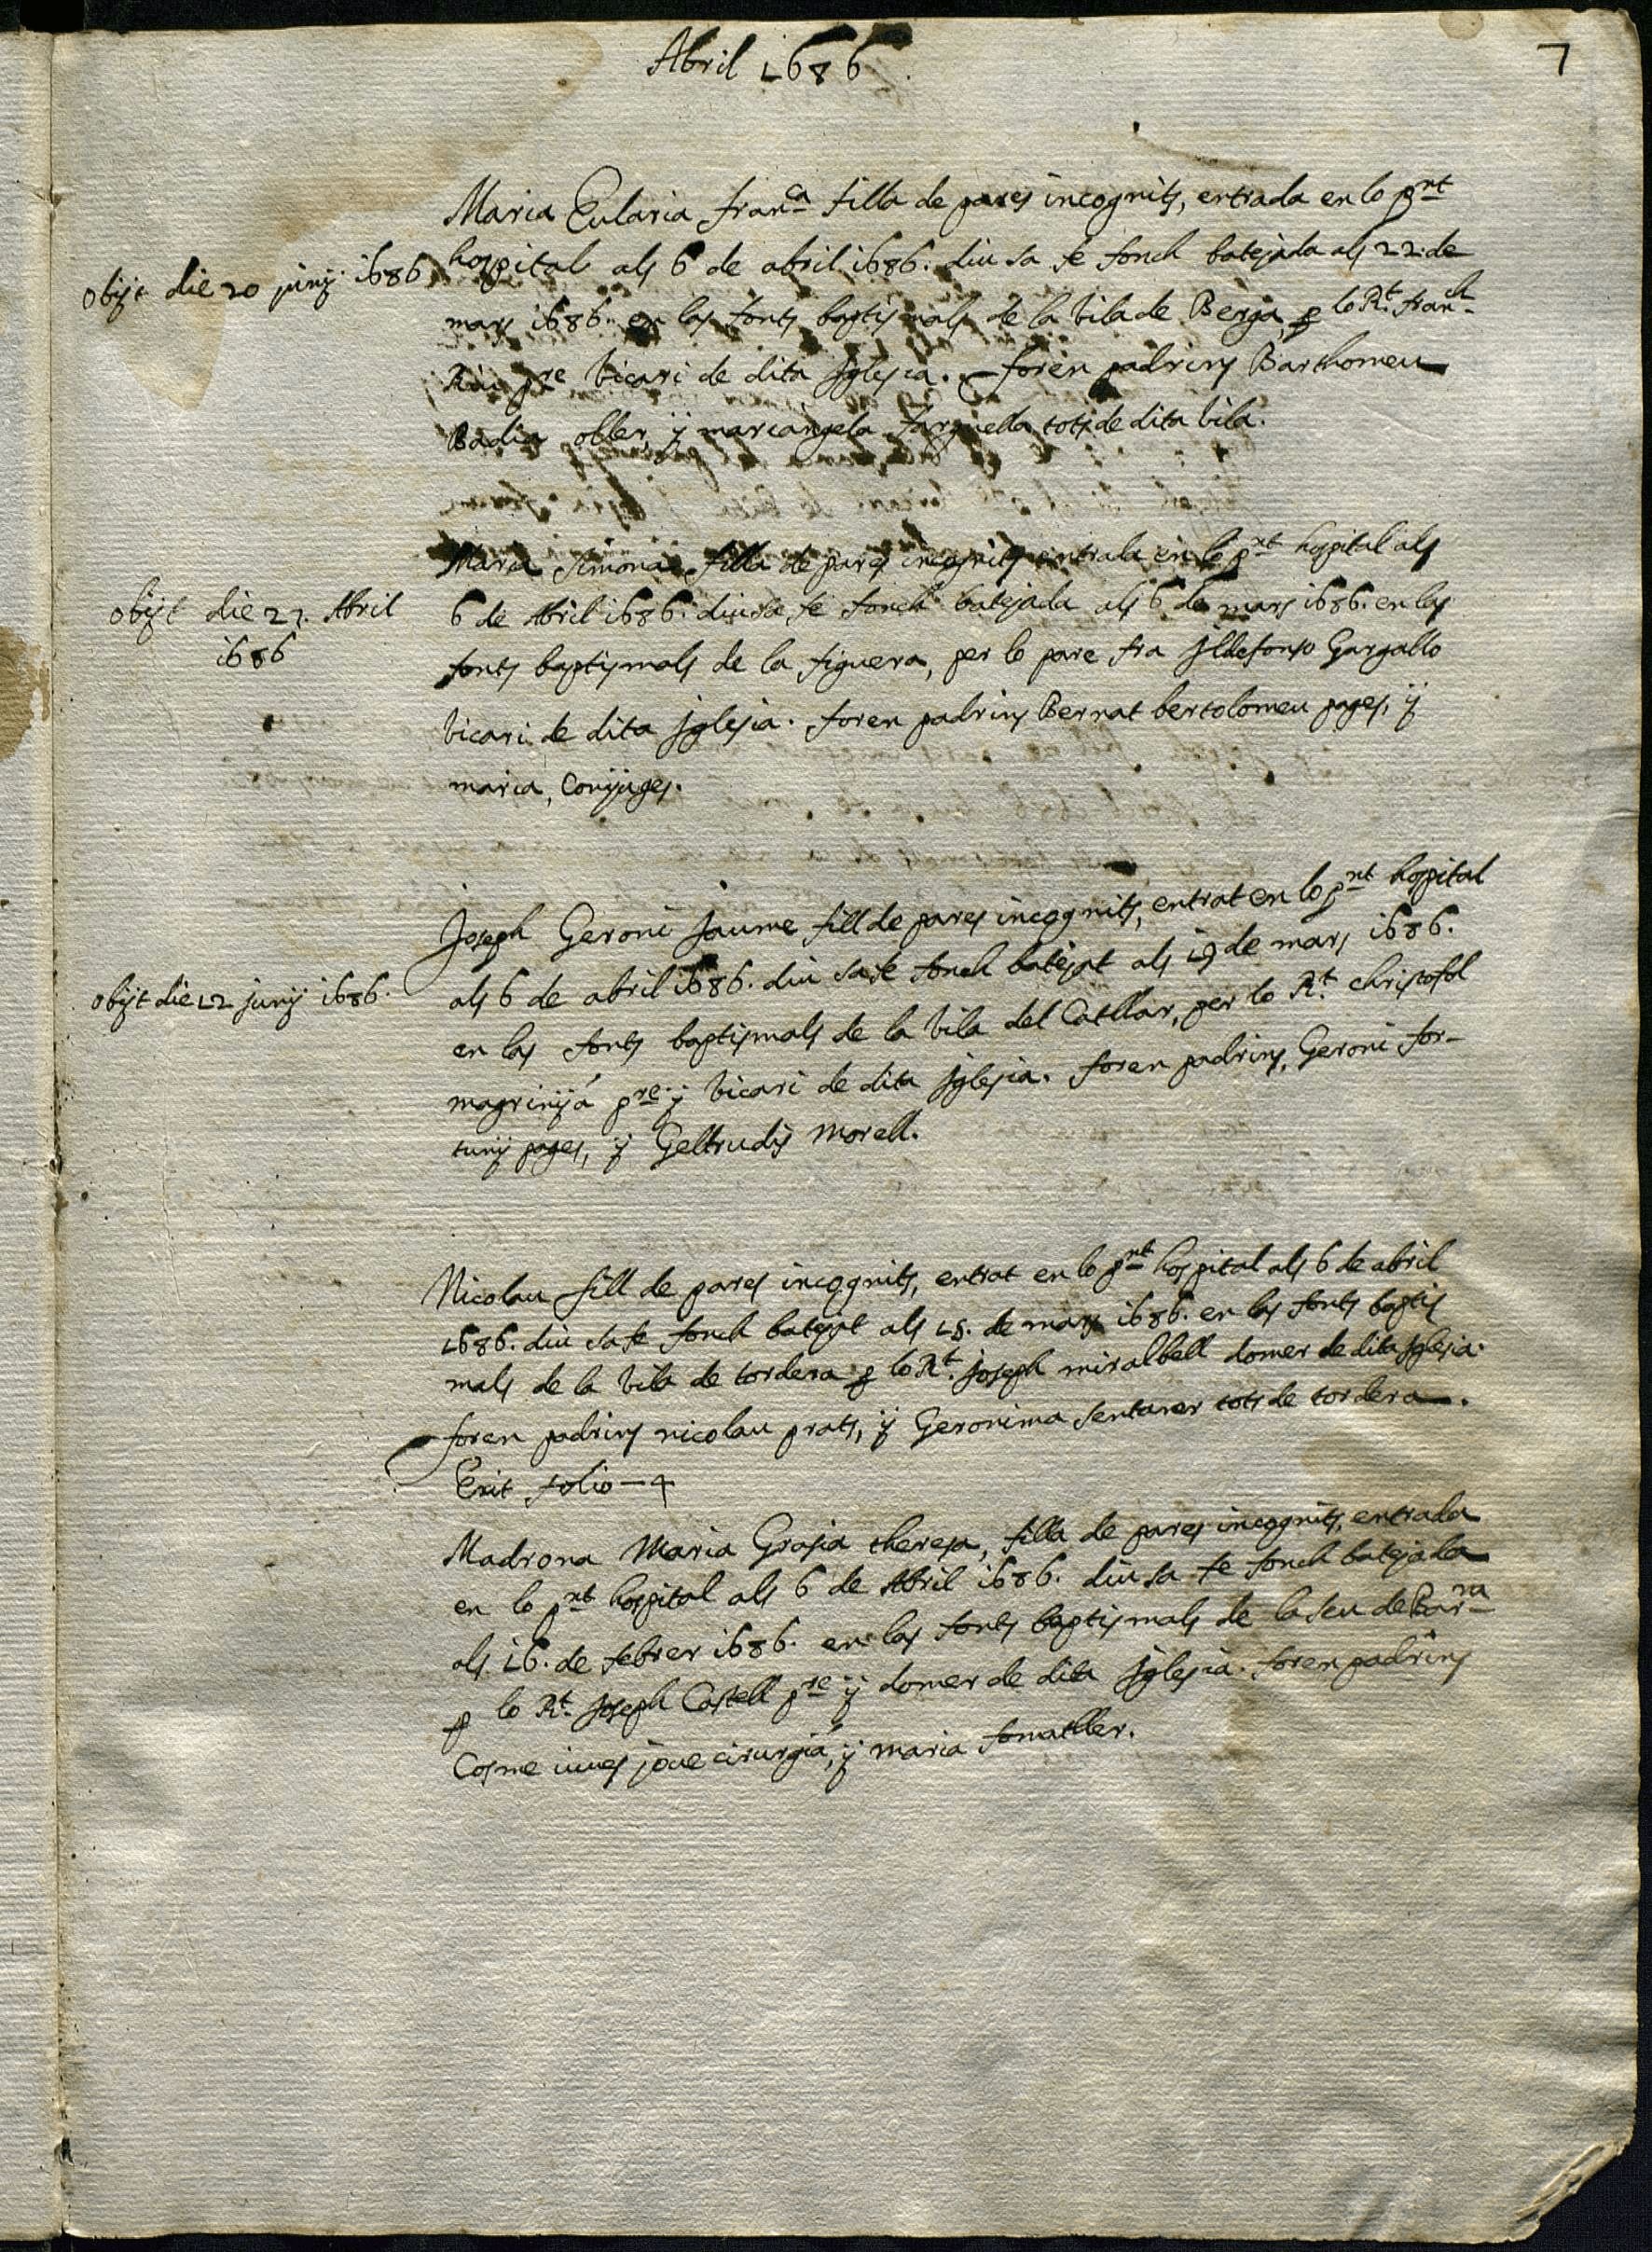 Abril 1686
7
Maria Eularia Fran^ca filla de pares incognits, entrada en lo p^nt
obijt die 20 junij 1686
hospital als 6 de abril 1686. diu sa fe fonch batejada als 22 de
mars 1686. en las fonts baptismals de la vila de Berga, p lo R^t. Fran^ch
Riu p^re vicari de dita Iglesia. foren padrins Barthomeu
Badia oller, y mariangela tots de dita vila.
Maria Simona filla de pares incognits entrada en lo p^nt hospital als
obijt die 23. Abril
1686
6 de Abril 1686. diu sa fe fonch batejada als 6 de mars 1686. en las
fonts baptismals de la figuera, per lo pare fra Ildefonso Gargallo
vicari de dita Iglesia. foren padrins Bernat bertolomeu pages, y
maria, Conjuges.
Joseph Geroni Jaume fill de pares incognits, entrat en lo p^nt hospital
obijt die 12 junij 1686.
als 6 de abril 1686. diu sa fe fonch batejat als 19 de mars 1686.
en las fonts baptismals de la vila del Catllar, per lo R^t. christofol
magrinyá p^re y vicari de dita Iglesia. foren padrins, Geroni for-
tuny pages, y Geltrudis Morell.
Nicolau fill de pares incognits, entrat en lo p^nt hospital als 6 de abril
1686. diu sa fe fonch batejat als 15. de mars 1686. en las fonts baptis
mals de la vila de tordera p lo R^t. Joseph miralbell domer de dita Iglesia.
foren padrins nicolau prats, y Geronima sentaner tots de tordera.
Exit folio — 4
Madrona Maria Grasia theresa, filla de pares incognits, entrada
en lo p^nt hospital als 6 de Abril 1686. diu sa fe fonch batejada
als 16. de febrer 1686. en las fonts baptismals de la seu de Bar^na
p lo R^t. Joseph Castell p^re y domer de dita Iglesia. foren padrins
Cosme iuues joue cirurgiá, y maria fonatller.